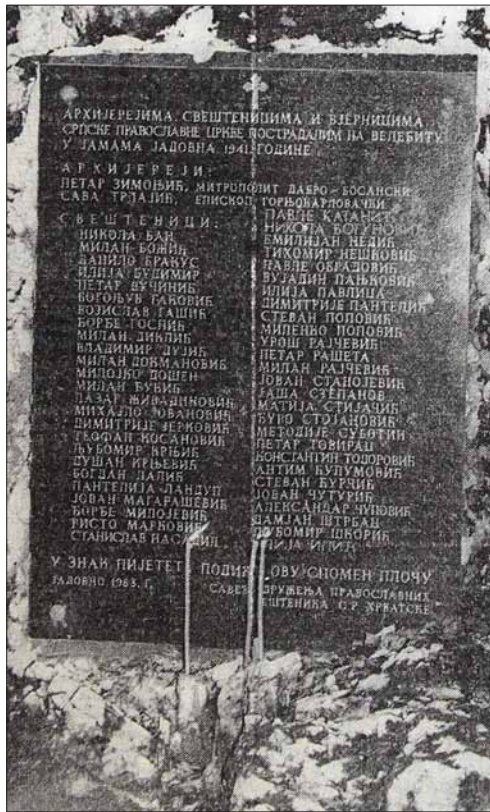 АРХИЈЕРЕЈИМА, СВЕШТЕНИЦИМА И ВЈЕРНИЦИМА
СРПСКЕ ПРАВОСЛАВНЕ ЦРКВЕ ПОСТРАДАЛИМ НА ВЕЛЕБИТУ
У ЈАМАМА ЈАДОВНА 1941. ГОДИНЕ
АРХИЈЕРЕЈИ:
ПЕТАР ЗИМОЊИЋ, МИТРОПОЛИТ ДАБРО-БОСАНСКИ
САВА ТРЛАЈИЋ, ЕПИСКОП ГОРЊОКАРЛОВАЧКИ
СВЕШТЕНИЦИ:
НИКОЛА БАН
МИЛАН БОЖИЋ
ДАНИЛО БРАКУС
ИЛИЈА БУДИМИР
ПЕТАР ВУЧИНИЋ
БОГОЉУБ ГАКОВИЋ
ВОЈИСЛАВ ГАШИЋ
ЂОРЂЕ ГОСПИЋ
МИЛАН ДИКЛИЋ
ВЛАДИМИР ДУЈИЋ
МИЛАН ДОКМАНОВИЋ
МИЛОЈКО ДОШЕН
МИЛАН ЂУКИЋ
ЛАЗАР ЖИВАДИНОВИЋ
МИХАЈЛО ЈОВАНОВИЋ
ДИМИТРИЈЕ ЈЕРКОВИЋ
ТЕОФАН КОСАНОВИЋ
ЉУБОМИР КРЊИЋ
ДУШАН
БОГДАН ЛАЛИЋ
ПАНТЕЛИЈА ЛАНДУП
ЈОВАН МАГАРАШЕВИЋ
ЂОРЂЕ МИЛОЈЕВИЋ
РИСТО МАРКОВИЋ
СТАНИСЛАВ НАСАДИН
ПАВЛЕ КАТАНИЋ
НИКОЛА БОГУНОВИЋ
ЕМИЛИЈАН НЕДИЋ
ТИХОМИР НЕШКОВИЋ
ПАВЛЕ ОБРАДОВИЋ
ВУЈАДИН ПАЊКОВИЋ
ИЛИЈА ПАВЛИЦА
ДИМИТРИЈЕ ПАНТЕЛИЋ
СТЕВАН ПОПОВИЋ
МИЛЕНКО ПОПОВИЋ
УРОШ РАЈЧЕВИЋ
ПЕТАР РАШЕТА
МИЛАН РАЈЧЕВИЋ
ЈОВАН СТАНОЈЕВИЋ
ЈАША СТЕПАНОВ
МАТИЈА СТИЈАЧИЋ
ЂУРО СТОЈАНОВИЋ
МЕТОДИЈЕ СУБОТИН
ПЕТАР ТОВИРАЦ
КОНСТАНТИН ТОДОРОВИЋ
АНТИМ ЋУЛУМОВИЋ
СТЕВАН ЋУРЧИЋ
ЈОВАН ЧУТУРИЋ
АЛЕКСАНДАР ЧУПОВИЋ
ДАМЈАН ШТРБАЦ
ЉУБОМИР ШКОРИЋ
ИЛИЈА
У ЗНАК ПИЈЕТЕТ ПОДИЖ ОВУ СПОМЕН ПЛОЧУ
ЈАДОВНО 1983. Г.
САВЕЗ ДРУЖЕЊА ПРАВОСЛАВНИХ
ЕШТЕНИКА С.Р. ХРВАТСКЕ